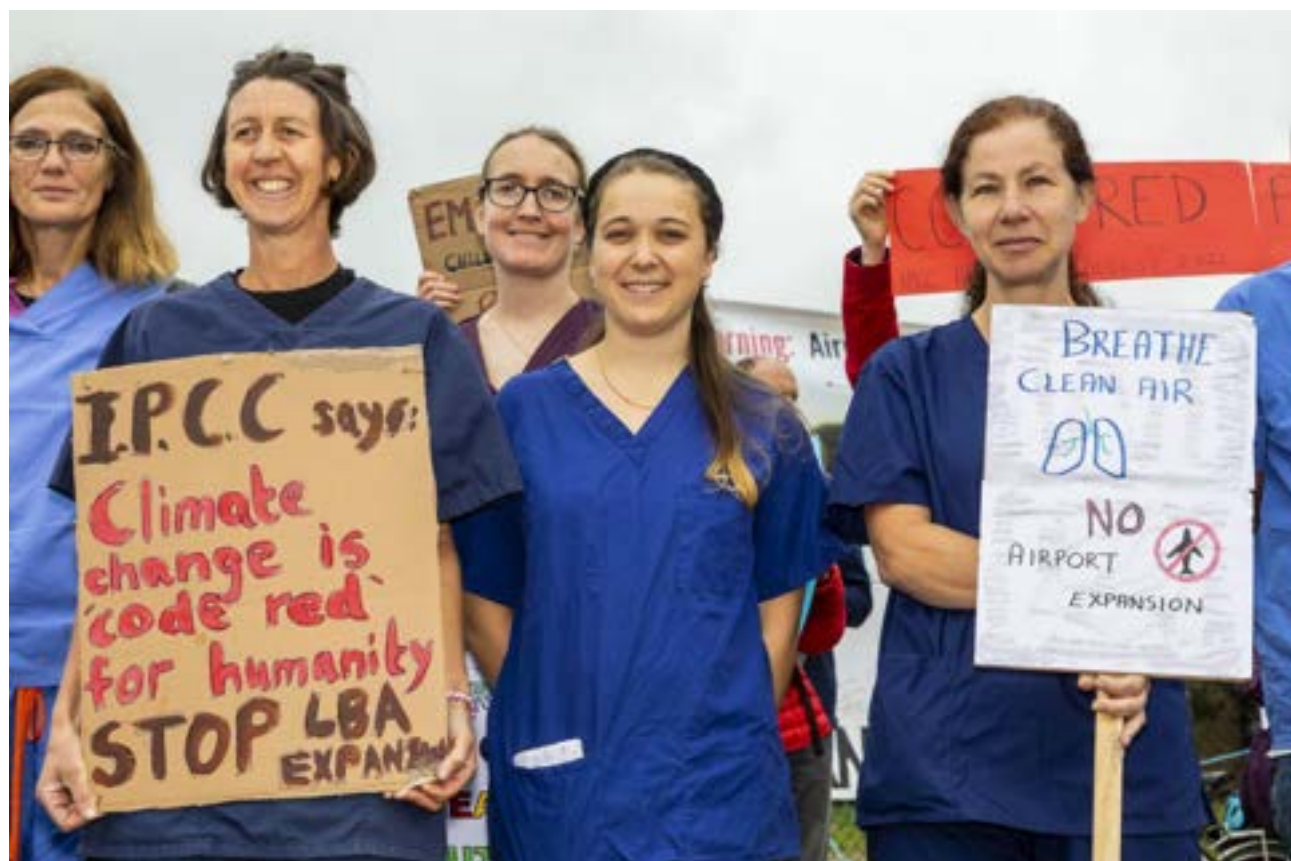 I.P.C.C says:
Climate
change is
'code red'
for humanity
STOP LBA
EXPAN
EM
CHILD
rning: Air
RED
2021
BREATHE
CLEAN AIR
NO
AIRPORT
EXPANSION